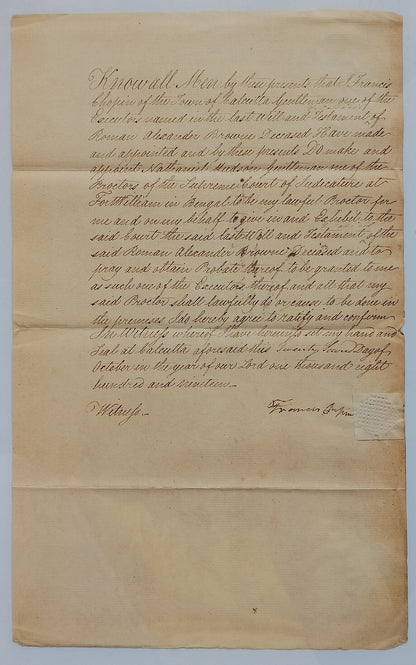 Know all Men by these presents that I Francis
Chopin of the Town of Calcutta Gentleman one of the
Executors named in the last Will and Testament of
Roman Alexander Browne Deceased Have made
and appointed and by these presents Do make and
appoint Nathaniel Hudson Gentleman one of the
Proctors of the Supreme Court of Judicature at
Fort William in Bengal to be my lawful Proctor for
me and on my behalf to give in and Exhibit to the
said Court the said last Will and Testament of the
said Roman Alexander Browne Deceased and to
pray and obtain Probate thereof to be granted to me
as such one of the Executors thereof and all that my
said Proctor shall lawfully do or cause to be done in
the premises I do hereby agree to ratify and confirm
In Witness whereof I have hereunto set my hand and
Seal at Calcutta aforesaid this Twenty Day of
October in the year of our Lord one thousand eight
hundred and nineteen
Witness
Francis